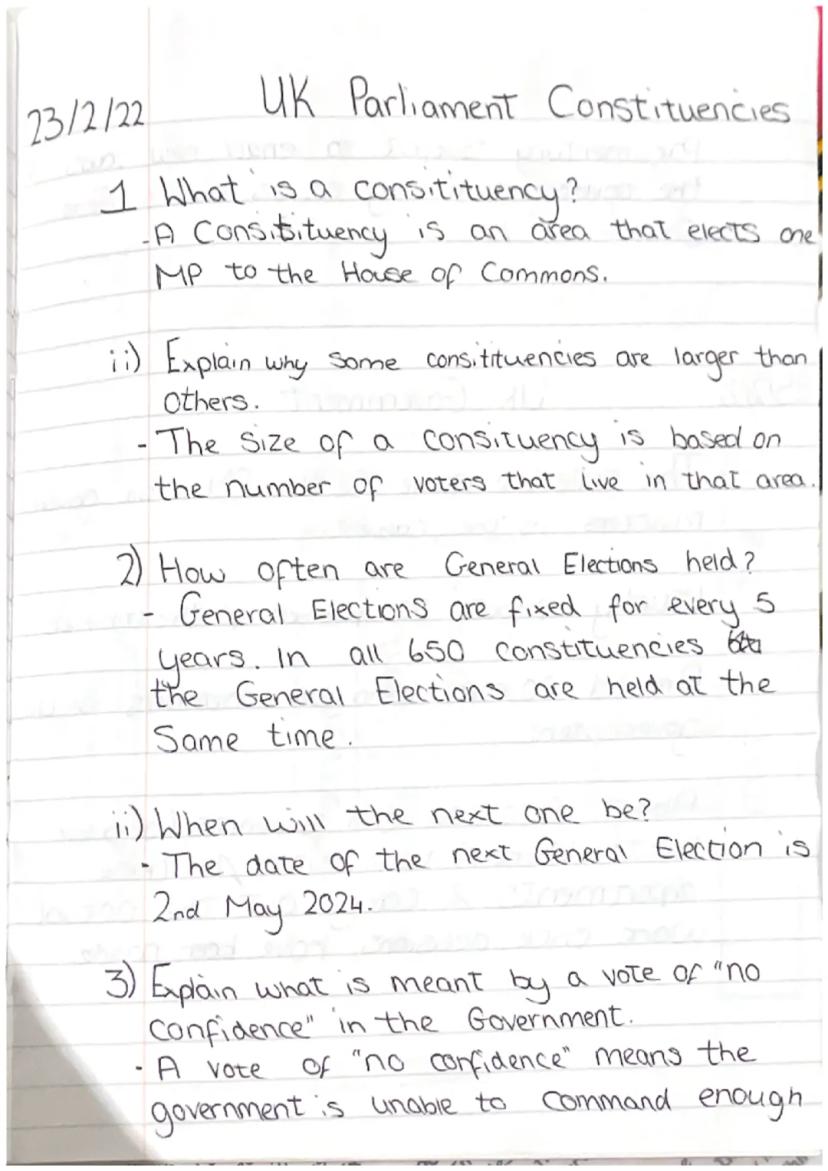 UK Parliament Constituencies
23/2/22
1 What is a consitituency?
-A Consitituency is an area that elects one
MP to the House of Commons.
ii) Explain why some consititituencies are larger than
others.
- The size of a consituency is based on
the number of voters that live in that area.
2) How often are General Elections held?
- General Elections are fixed for every 5
years. In all 650 constituencies
the General Elections are held at the
Same time.
ii) When will the next one be?
- The date of the next General Election is
2nd May 2024.
3) Explain what is meant by a vote of "no
confidence" in the Government.
- A vote of "no confidence" means the
government is unable to command enough